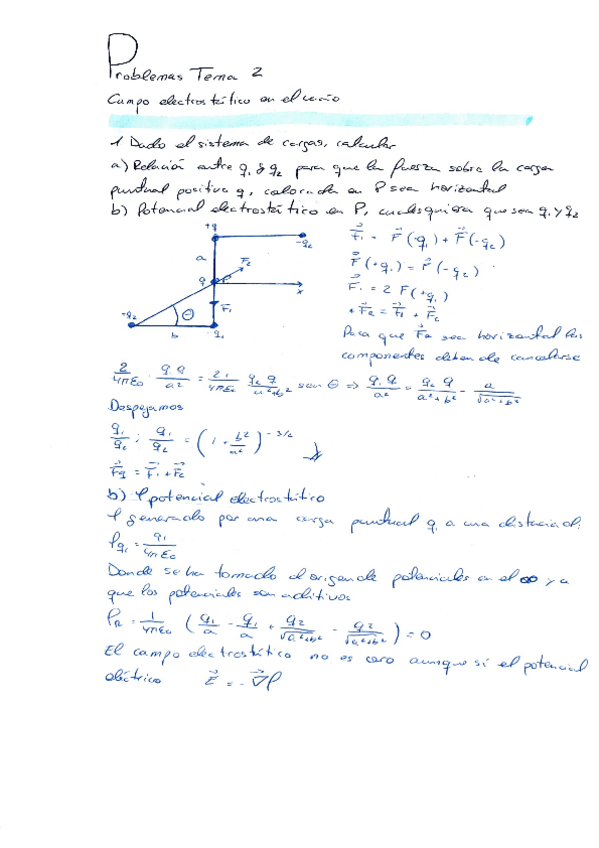 Problemas Tema 2
Campo electrostático en el vacío
1 Dado el sistema de cargas, calcular
a) Relación entre q₁ y q₂ para que la fuerza sobre la carga
puntual positiva q, colocada en P sea horizontal
b) Potencial electrostático en P, cualesquiera que sean q₁ y q₂
a
-q₂
q
P
F₂
x
F₁
-q₂
θ
b
q₁
F⃗₁ = F⃗(-q₁) + F⃗(-q₂)
F⃗(+q₁) = F⃗(-q₂)
F⃗₁ = 2 F(+q₁)
+F⃗₂ = F⃗₁ + F⃗₂
Para que F⃗R sea horizontal las
componentes deben de cancelarse
2/4πε₀ · q q/a² = 2/4πε₀ q₂ q/a²+b² sen θ ⇒ q₁ q/a² = q₂ q/a²+b² - a/√a²+b²
Despejamos
q₁/q₂ ; q₁/q₂ = (1 + b²/a²)^-3/2
F⃗q = F⃗₁ + F⃗₂
b) φ potencial electrostático
φ generado por una carga puntual q₁ a una distancia d:
φq₁ = q₁/4πε₀
Donde se ha tomado el origen de potenciales en el ∞ y a
que los potenciales son aditivos
= 1/4πε₀ (q₁/a - q₁/a + q₂/√a²+b² - q₂/√a²+b²) = 0
El campo electrostático no es cero aunque si el potencial
eléctrico E⃗ = -∇⃗φ